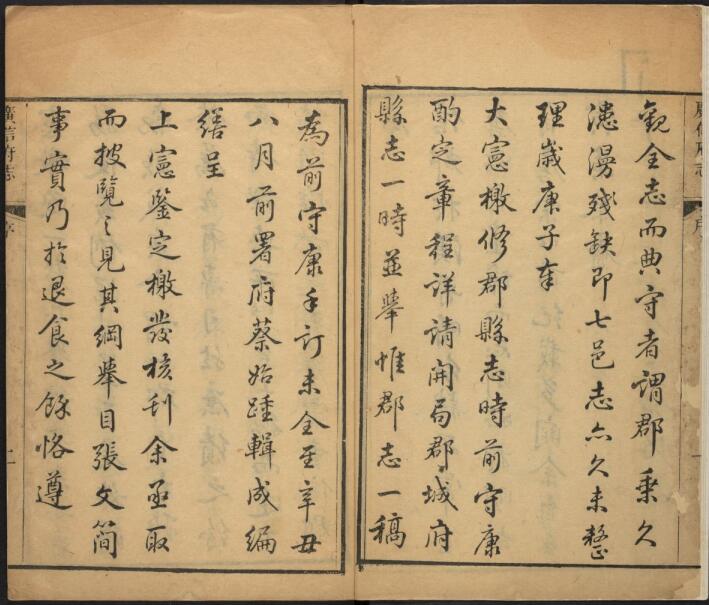 廣信府志
序
一
觀全志而典守者謂郡乘久
漶漫殘缺即七邑志亦久未整
理歲庚子奉
大憲檄修郡縣志時前守康
酌定章程詳請開局郡城府
縣志一時並舉惟郡志一稿
為前守康手訂未全至辛丑
八月前署府蔡始踵輯成編
繕呈
上憲鑒定檄發核刊余亟取
而披覽之見其綱舉目張文簡
事實乃於退食之餘恪遵
廣信府志
序
二